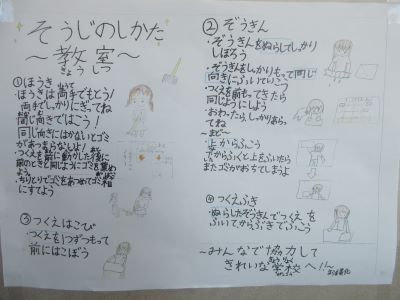 そうじのしかた
～教室～
きょうしつ
①ほうき
ほうきは両手でもとう!
両手でしっかりにぎってね
同じ向きではこう!
同じ向きにはかないとゴミ
があつまらないよ!
・つくえを前に動かした後に
前のときと同じようにゴミを集め
よう。
・ちりとりでゴミをあつめてゴミ箱
にすてよう
③つくえはこび
つくえを1つずつもって
前にはこぼう
②ぞうきん
・ぞうきんをぬらしてしっかり
しぼろう
・ぞうきんをしっかりもって同じ
向きにふいていこう
・つくえを前もってきたら
同じようにしよう
・おわったら、しっかりあらっ
てね
～まど～
上からふこう
下からふくと、上をふいたら
またゴミがおちてしまうよ
④つくえふき
・ぬらしたぞうきんでつくえを
ふいてからぶきでふこう
～みんなで協力して
きれいな学校へ!!～